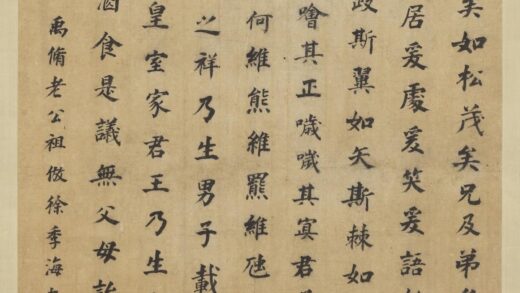 矣如松茂矣兄及弟
居爰處爰笑爰語
跂斯翼如矢斯棘如
噲其正噦噦其冥君
何維熊維羆維虺
之祥乃生男子載
皇室家君王乃生
酒食是議無父母詒
禹脩老公祖倣徐季海